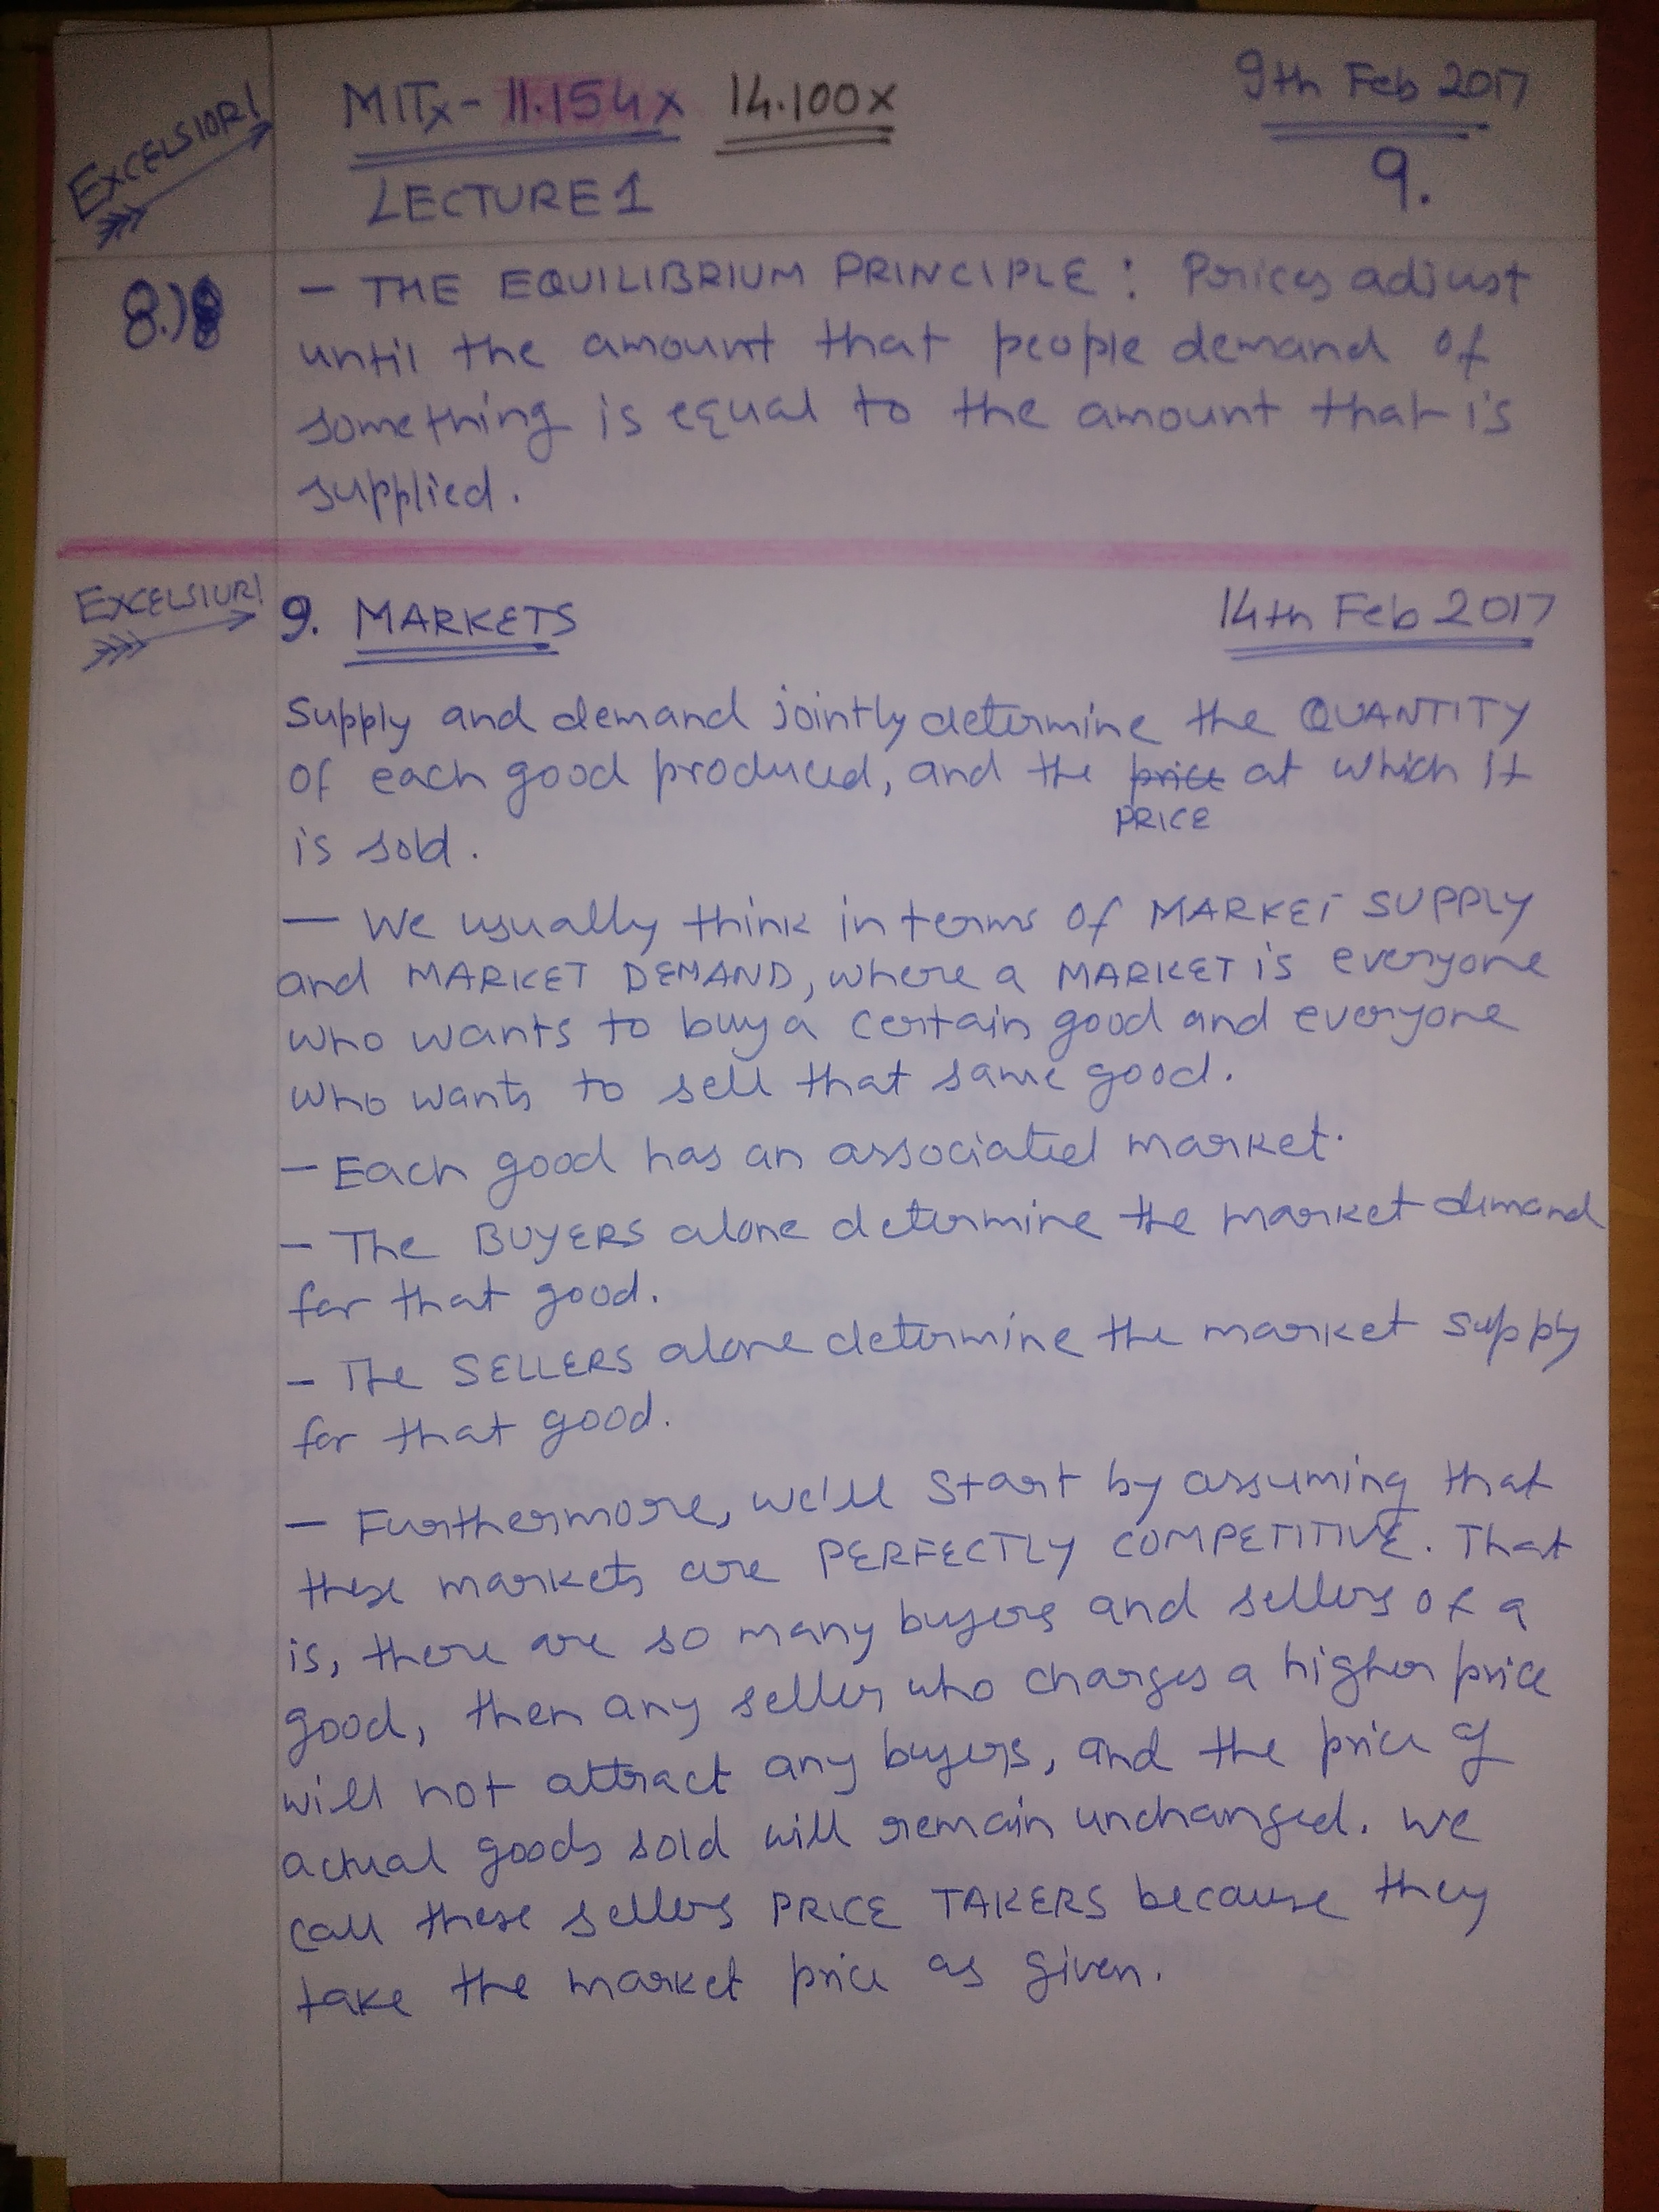 EXCELSIOR!
MITx- 11.154x 14.100x
9th Feb 2017
LECTURE 1
9.
8.)
- THE EQUILIBRIUM PRINCIPLE : Prices adjust
until the amount that people demand of
something is equal to the amount that is
supplied.
EXCELSIOR!
9. MARKETS
14th Feb 2017
Supply and demand jointly determine the QUANTITY
of each good produced, and the price at which it
PRICE
is sold.
- We usually think in terms of MARKET SUPPLY
and MARKET DEMAND, where a MARKET is everyone
who wants to buy a certain good and everyone
who wants to sell that same good.
- Each good has an associated market.
- The BUYERS alone determine the market demand
for that good.
- The SELLERS alone determine the market supply
for that good.
- Furthermore, we'll start by assuming that
these markets are PERFECTLY COMPETITIVE. That
is, there are so many buyers and sellers of a
good, then any seller who charges a higher price
will not attract any buyers, and the price of
actual goods sold will remain unchanged. We
call these sellers PRICE TAKERS because they
take the market price as given.